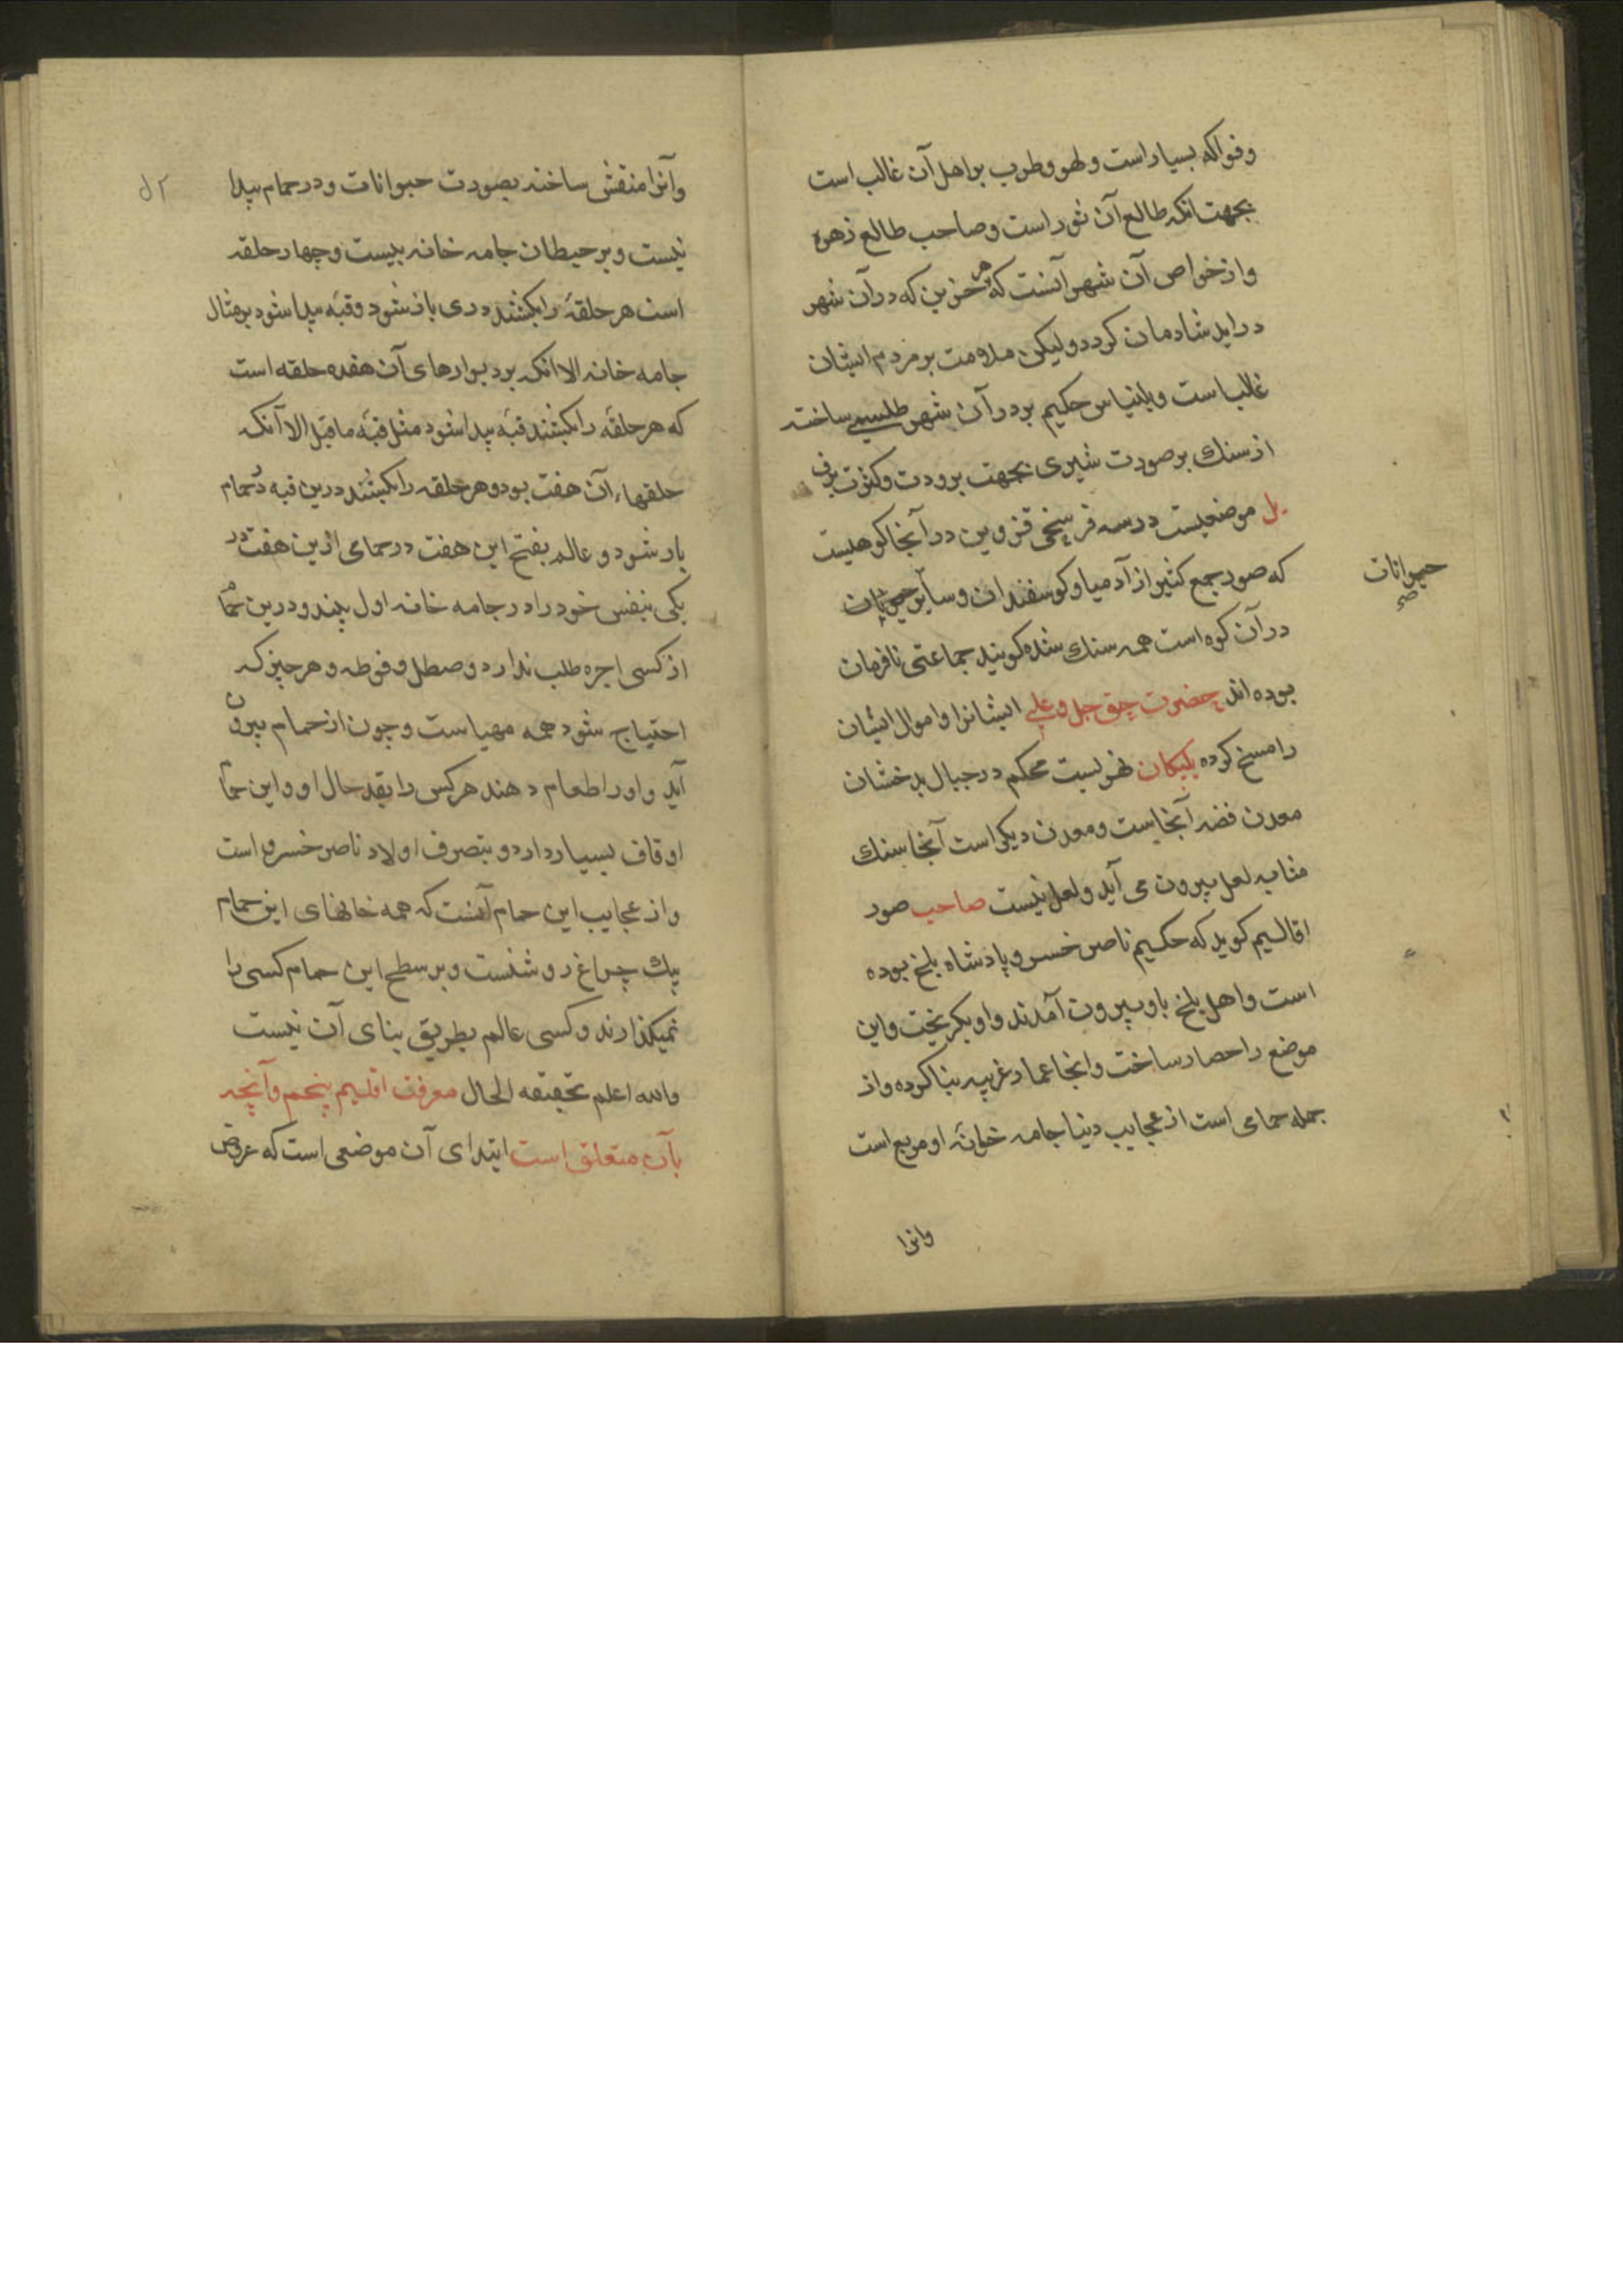 وفواکه بسیار است ولهو وطرب بر اهل آن غالب است
بجهت انکه طالع آن ثور است وصاحب طالع زهره
واز خواص آن شهر آنست که هر حزین که در آن شهر
در اید شادمان کردد ولیکن ملامت بر مردم ایشان
غالب است وبلیناس حکیم بر در آن شهر طلسمی ساخته
از سنك بر صورت شیری بجهت برودت وکثرت برف
یل موضعیست در سه فرسخی قزوین در آنجا کوهیست
که صور جمع کثیر از آدمی او کوسفندان وسایر
حیوانات
صح
در آن کوه است همه سنك شده کویند جماعتی نافرمان
بوده اند حضرت حق جل وعلی ایشانرا واموال ایشان
را مسخ کرده یلیکان شهریست محکم در جبال بدخشان
معدن فضه آنجاست ومعدن دیکر است آنجا سنك
مثابه لعل بیرون می آید ولعل نیست صاحب صور
اقالیم کوید که حکیم ناصر خسرو پادشاه بلخ بوده
است واهل بلخ باو بیرون آمدند واو بکریخت واین
موضع را حصار ساخت وانجا عمار غریبه بنا کرده واز
جمله حمامی است از عجایب دنیا جامه خانهٔ او مربع است
وانرا
وآنرا منقش ساخته بصورت حیوانات ودر حمام پیدا
نیست وبر حیطان جامه خانه بیست وچهار حلقه
است هر حلقهٔ را بکشند دری باز شود وقبهٔ پیدا شود بر مثال
جامه خانه الا انکه بر دیوارهای آن هفده حلقه است
که هر حلقهٔ را بکشند قبهٔ پیدا شود مثل قبهٔ ما قبل الا آنکه
حلقهاء آن هفت بود وهر حلقه را بکشند درین قبه در حمام
باز شود وعالم بفتح این هفت در حمامی ازین هفت در
یکی بنفس خود را در جامه خانه اول بیند ودرین حمام
از کسی اجره طلب ندارد وصطل وفوطه وهر چیز که
احتیاج شود همه مهیاست وچون از حمام بیرون
آید واورا طعام دهند هر کس را بقدر حال او واین حمام
اوقاف بسیار دارد وبتصرف اولاد ناصر خسرو است
واز عجایب این حمام آنست که همه خانهای این حمام
بیك چراغ روشنست وبر سطح این حمام کسی را
نمیکذارند وکسی عالم بطریق بنای آن نیست
والله اعلم بحقیقه الحال معرفت اقلیم پنجم وآنچه
بآن متعلق است ابتدای آن موضعی است که عرض